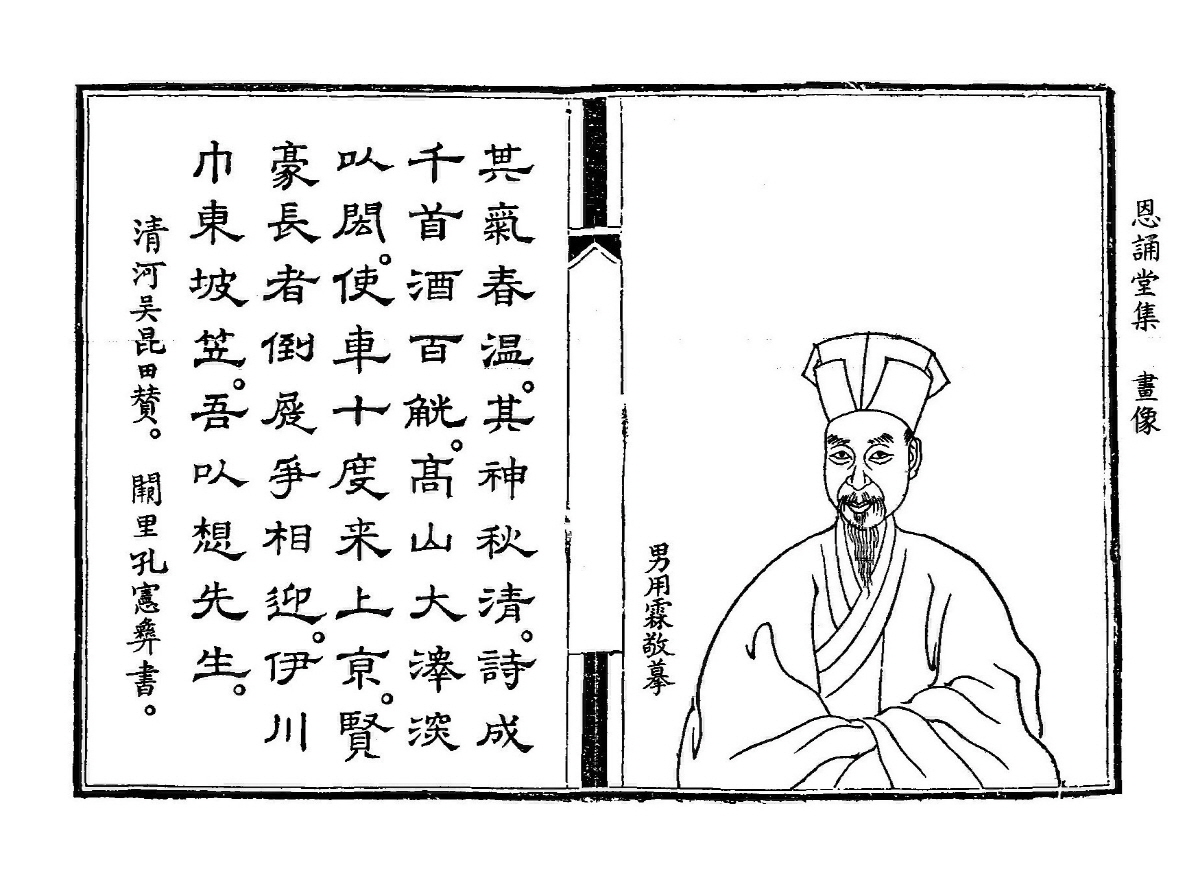 恩誦堂集　畫像
男用霖敬摹
其氣春温。其神秋清。詩成
千首酒百觥。高山大澤深
以閎。使車十度来上亰。賢
豪長者倒屣爭相迎。伊川
巾東坡笠。吾以想先生。
清河吴昆田賛。　闕里孔憲彝書。